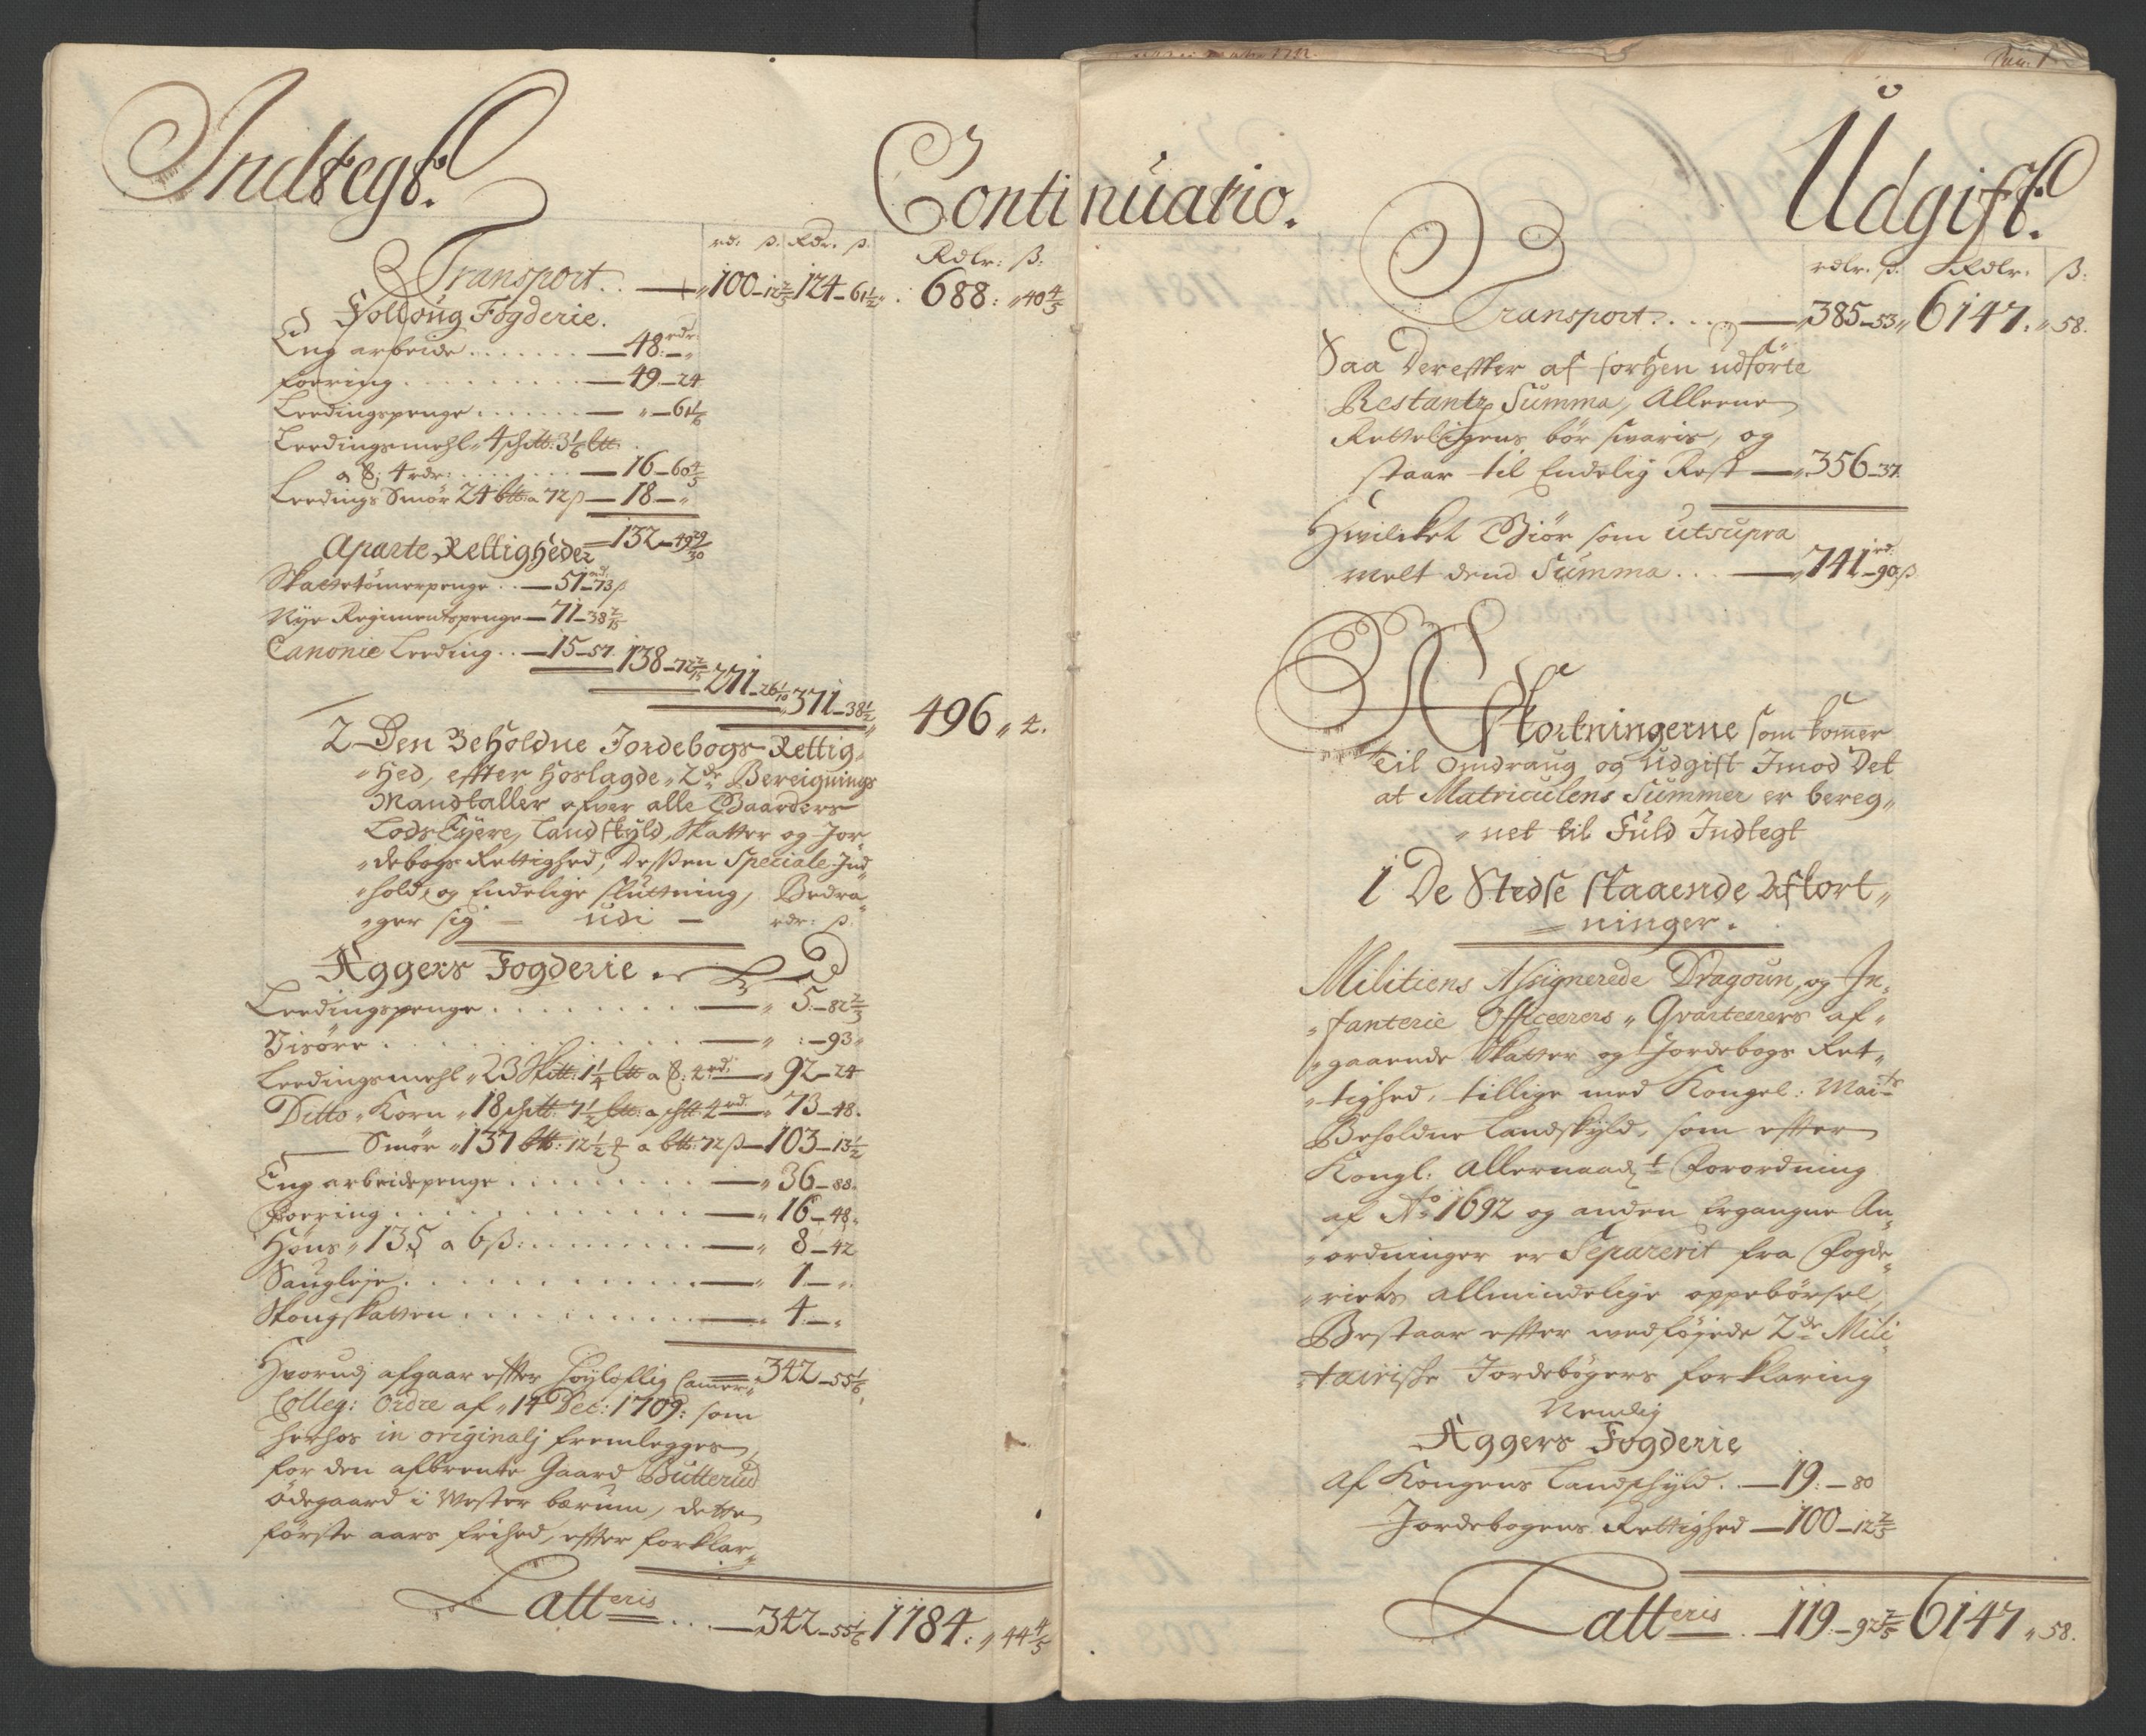 Indtegt.
Continuatio.
rd: ß. Rdr. ß.
Rdlr: ß:
Transport. — 100–12 2/5 124–61 1/2 688: 40 4/5
Folloug Fogderie.
Eng arbeide — 48 rdr –
foering — 49–24
Leedingspenge — „–61 1/6
Leedingsmehl 4 schtt: 3 1/6 ltt
a 8; 4 rdr: — 16–60 4/5
Leedings Smör 24 btt: a 72 ß — 18–„
132–49 29/30
Aparte Rettigheder
Skattetömerpenge — 51–73 ß
Nÿe Regimentspenge — 71–38 2/15
Canonie Leeding — 15–57 138–72 2/15
271–26 1/10
371–38 1/2
496 „ 4.
2 Den Beholdne Jordebogs Rettig„
„hed, effter hoslagde 2de Bereignings
Mandtaller ofver alle Gaarders
Lods Eÿere, Landskÿld, Skatter og Jor„
„debogs Rettighed, dessen Speciale Ind„
„hold, og Endelige sluttning, Bedra„
„ger sig – udi – rdr: ß.
Aggers Fogderie.
Leedingspenge — 5–82 2/3
Visöre — :–93
Leedingsmehl 23 Sktt: 1 1/4 ltt a 8: 4 rd: — 92–24
Ditto Korn 18 schtt: 7 1/2 ltt: a schtt 4 rd: — 73–48.
Smör 137 btt: 12 1/2 a btt: 72 ß — 103–13 1/2
Eng arbeidspenge — 36–88.
Foering — 16–48.
Höns 135 a 6 ß: — 8–42
Saugleje — 1–„
Skougskatten — 4–„
Hvorudj afgaar effter Höÿloflig Camer„ 342–55 1/6
Colleg: Ordre af 14 Dec: 1709: som
herhos in originalj fremlegges,
for den afbrente Gaard Butterud
ödegaard i Wester bærum, dette
förste aars frihed, effter forklar„
Latteris — 342–55 1/6 1184: 44 4/5
Udgift.
rdlr. ß. Rdlr. ß:
Transport — 385–53 6147. 58.
Saa Dereffter af forhen udförte
Restantz Summa, Alleene
Retteligens bör svaris, og
staar til Endelig Rest — 356–37.
Hvilcket Giör som utsupra
melt dend Summa — 741 rd: –90 ß
Afkortningerne som komer
til Omdraug og Udgift Imod Det
at Matriculens Summer er bereg„
„net til Fuld Indtegt
1 De Stedse staaende Afkort„
ninger.
Militiens Assignerede Dragoun, og In„
„fanterie Officeerers Qvarteerers af„
„gaaende Skatter og Jordebogs Ret„
„tighed, tillige med Kongel: Maits
Beholdne Landskÿld, som effter
Kongl: Allernaad: Forordning
af Ao 1692 og anden Ergangne An„
„ordninger er Separerit fra Fogde„
„riets allmindelige oppebörsel,
Bestaar effter medföjede 2de Mili„
„tairiske Jordebögers forklaring
Nemlig
Aggers Fogderie
Af Kongens Landskÿld — 19–80
Jordebogens Rettighed — 100–12 2/5
Latteris — 119–92 2/5 6147 „ 58.